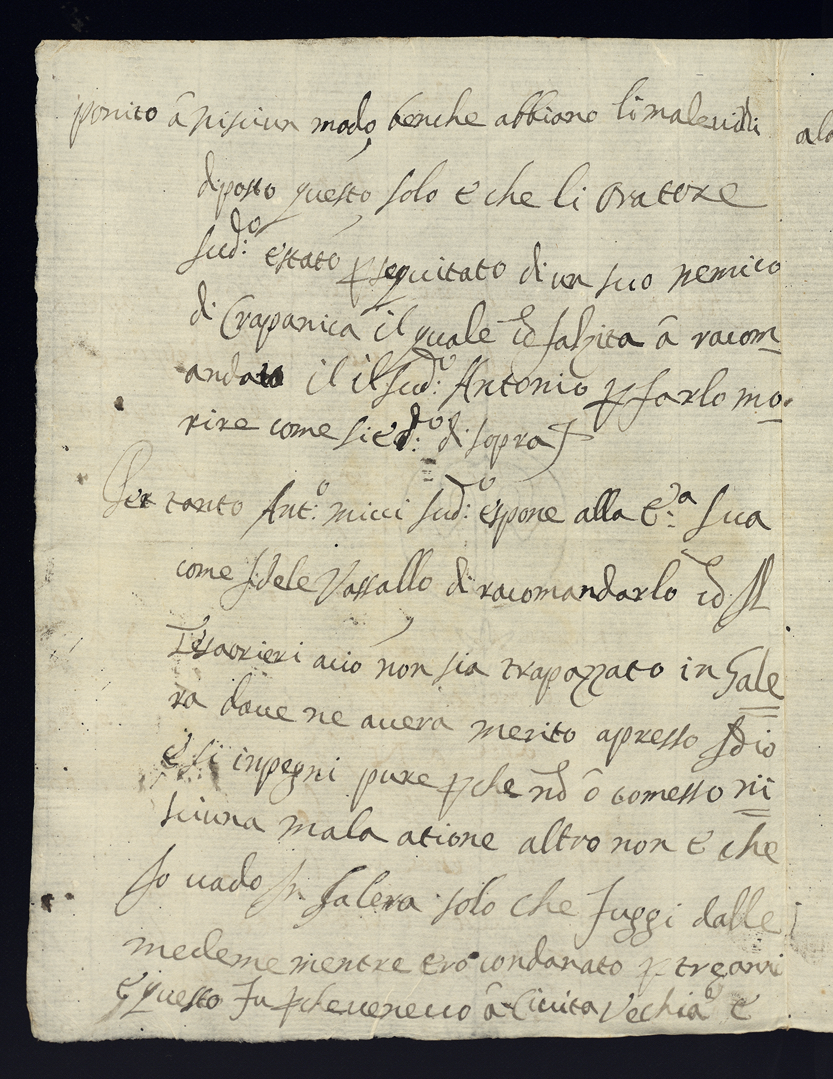 ponito â nisciun modo, benche abbiano li maleviditi
diposto questo solo e che li Oratore
sud:º e stato p seguitato di un suo nemico
di Crapanica il quale cō falzita â racom
andato il il sud:º Antonio p farlo mo-
rire come si e d:º di sopra
Per tanto Ant:º micci sud:º espone alla E:ª Sua
come fidele Vassallo di racomandarlo cō
Tesaorieri acciò non sia trapazzato in Gale
ra dove ne avera merito apresso Idio
e si inpegni pure p che nō ô comesso ni
sciuna mala atione altro non e che
Io vado In Galera solo che fuggi dalle
medeme mentre ero condanato p tre anni
e questo fu p che venevo â Civita Vechia e